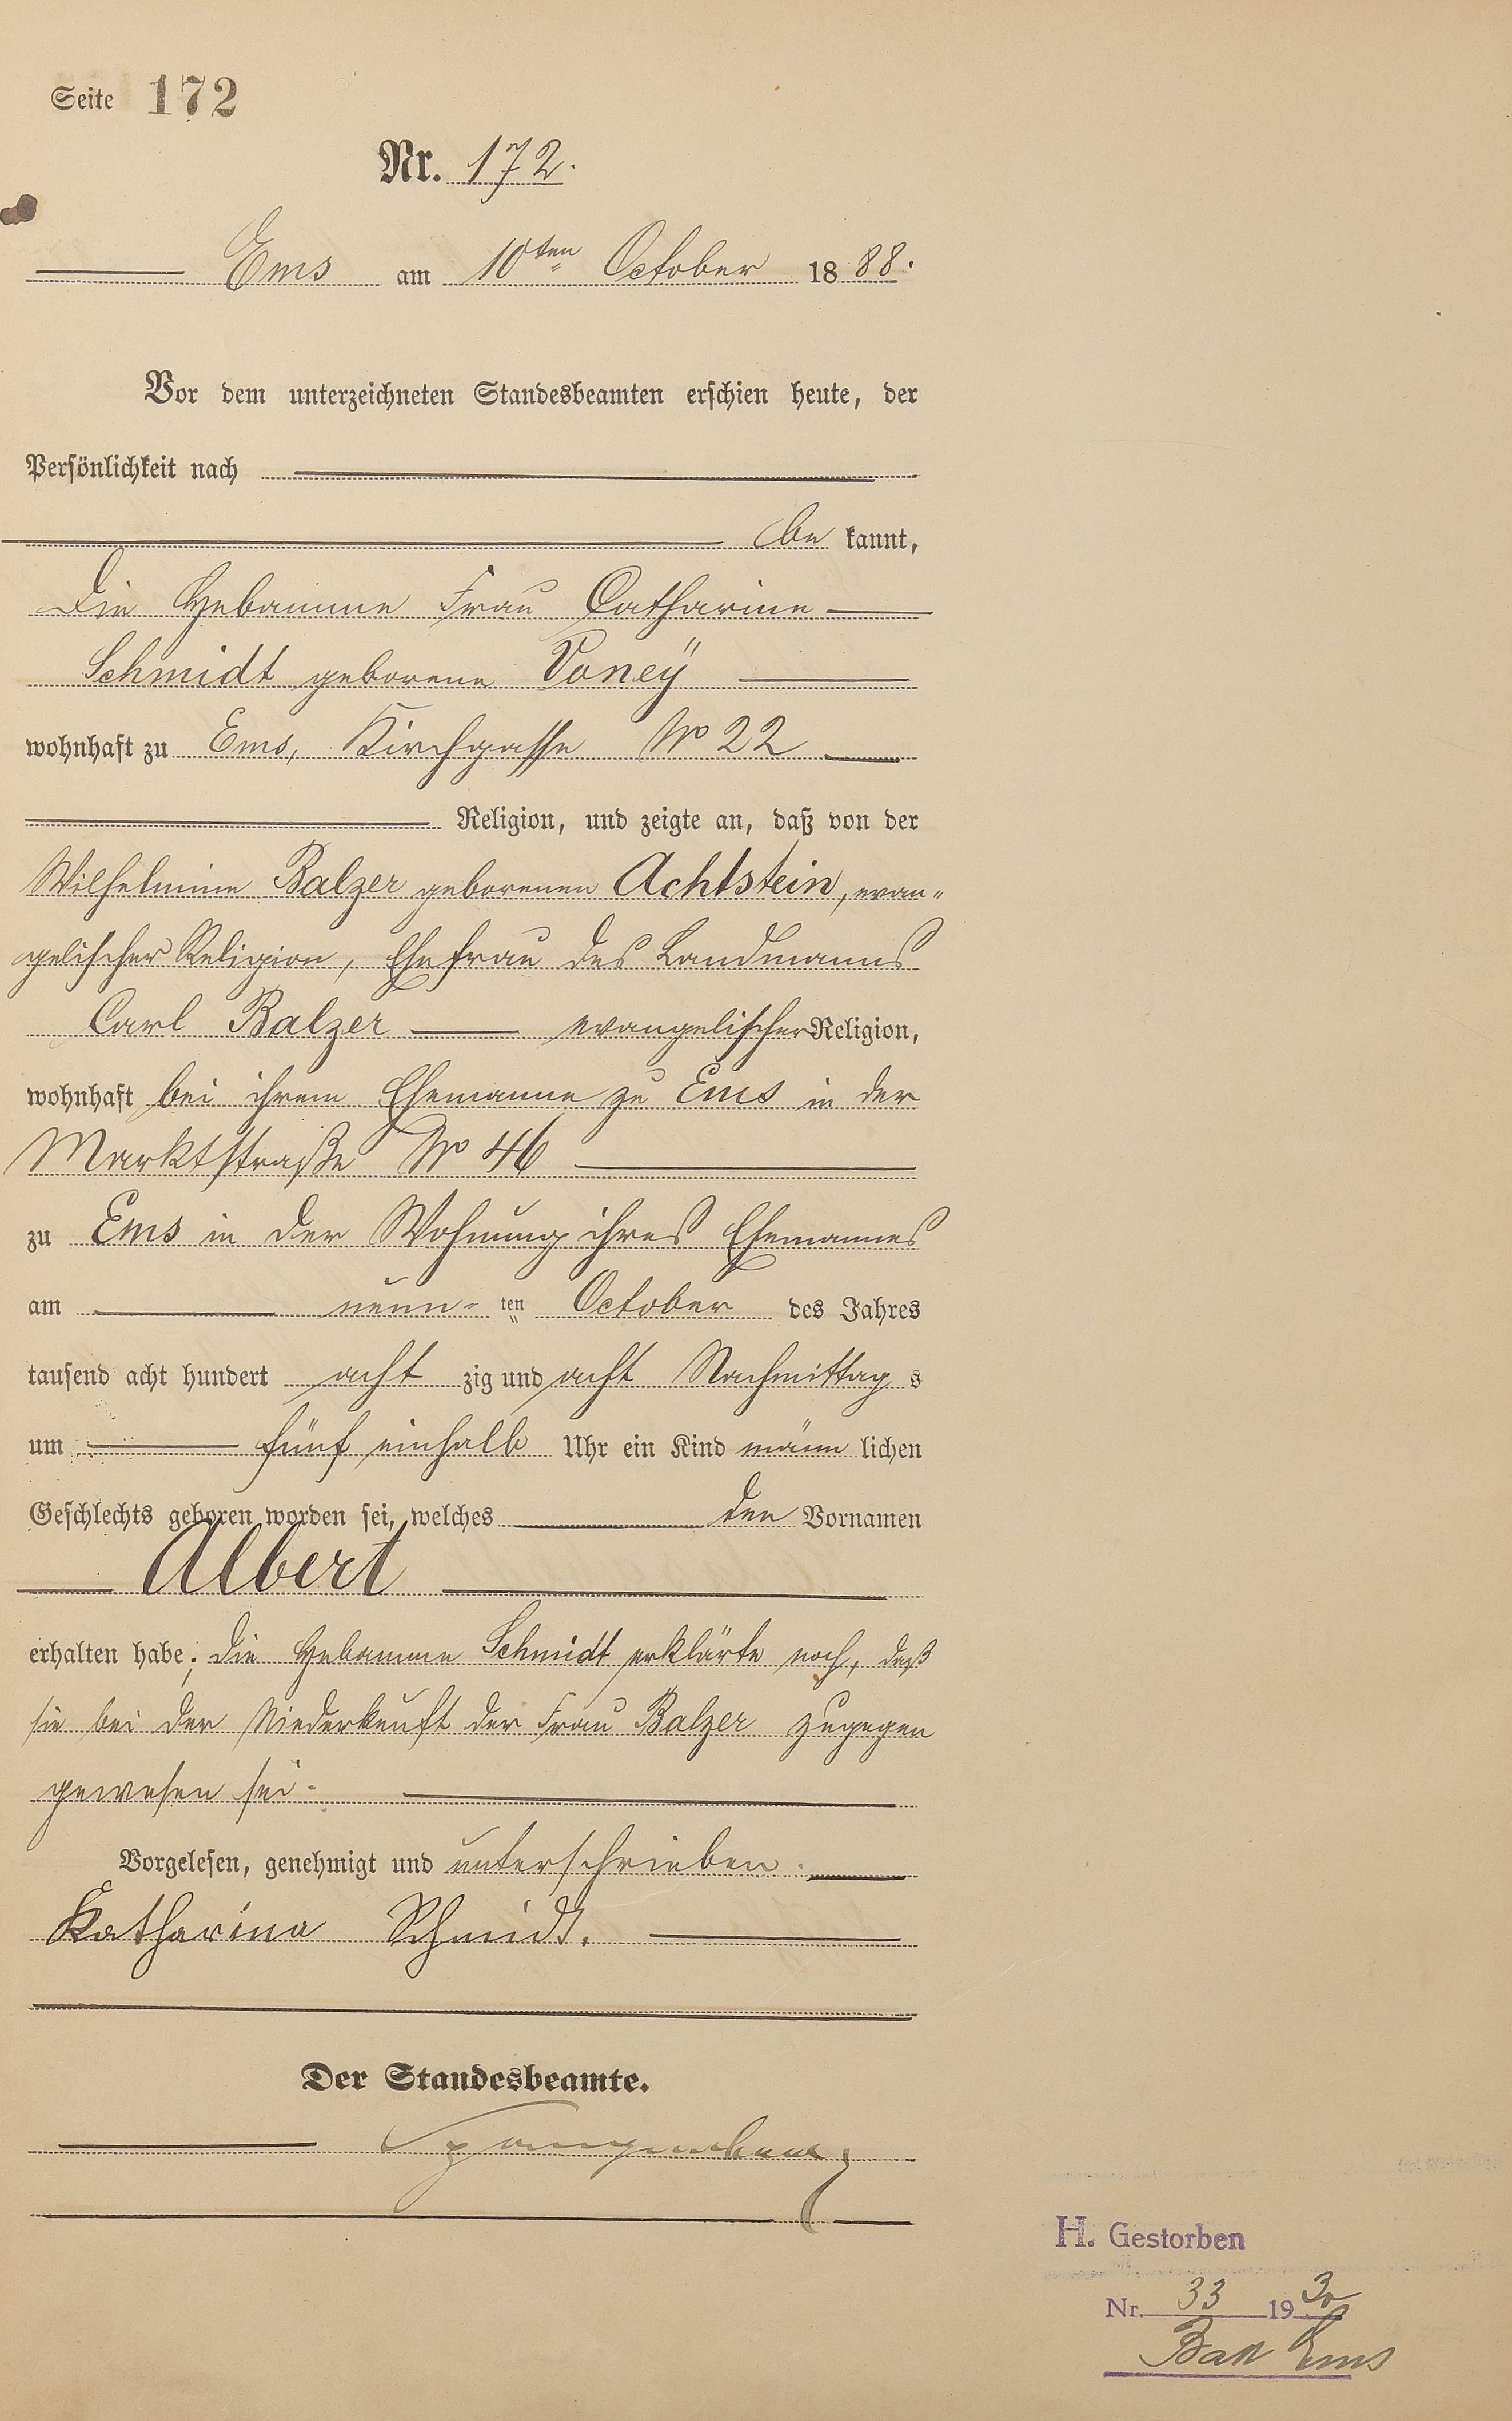 Seite 172
Nr. 172.
Ems am 10ten October 1888.
Vor dem unterzeichneten Standesbeamten erschien heute, der
Persönlichkeit nach
be kannt,
die Hebamme Frau Catharine
Schmidt geborene Voneÿ
wohnhaft zu Ems, Kirchgasse No 22
Religion, und zeigte an, daß von der
Wilhelmine Balzer geborenen Achtstein, evan-
gelischer Religion, Ehefrau des Landmanns
Carl Balzer evangelischer Religion,
wohnhaft bei ihrem Ehemanne zu Ems in der
Marktstraße No 46
zu Ems in der Wohnung ihres Ehemannes
am neun- ten October des Jahres
tausend acht hundert acht zig und acht Nachmittag s
um fünf einhalb Uhr ein Kind männ lichen
Geschlechts geboren worden sei, welches den Vornamen
Albert
erhalten habe; die Hebamme Schmidt erklärte noch, daß
sie bei der Niederkunft der Frau Balzer zugegen
gewesen sei.
Vorgelesen, genehmigt und unterschrieben.
Katharina Schmidt.
Der Standesbeamte.
H. Gestorben
Nr. 33 1930
Bad Ems